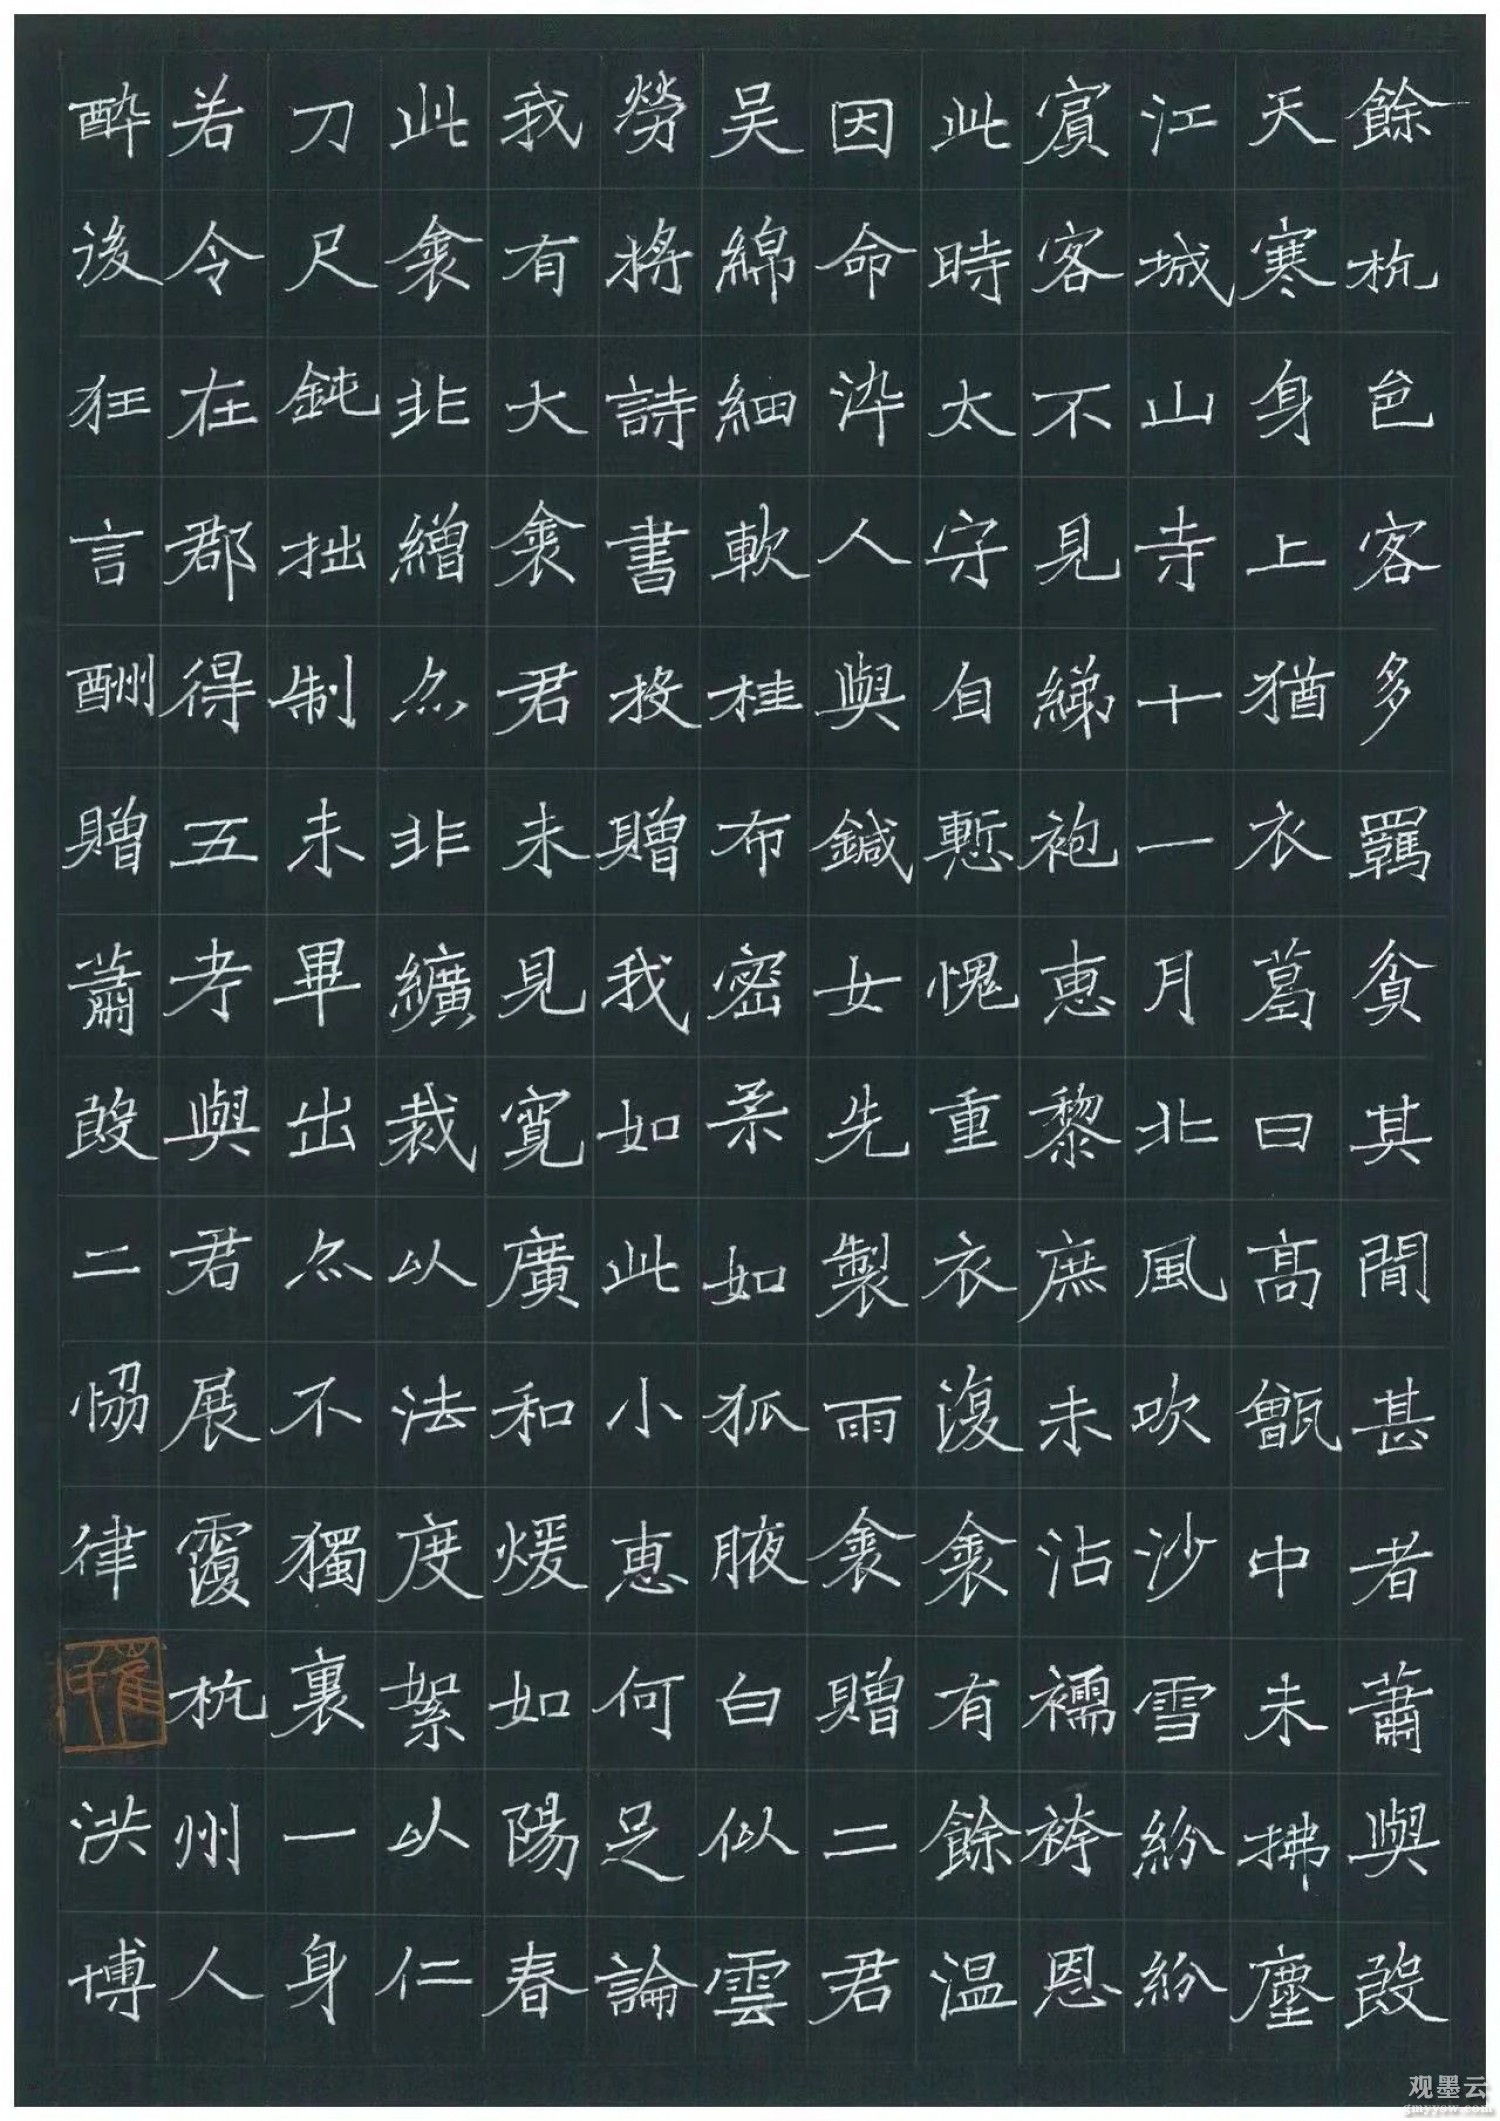 餘杭邑客多羇貧其間甚者蕭與殷
天寒身上猶衣葛日高甑中未拂塵
江城山寺十一月北風吹沙雪紛紛
賓客不見綈袍惠黎庶未沾襦袴恩
此時太守自慙愧重衣復裘有餘温
因命染人與鍼女先製兩裘贈二君
吴綿細軟桂布密柔如狐腋白似雲
勞將詩書投贈我如此小惠何足論
我有大裘君未見寬廣和煖如陽春
此裘非繒亦非纊裁以法度絮以仁
刀尺鈍拙制未畢出亦不獨裹一身
若令在郡得五考與君展覆杭州人
醉後狂言酬贈蕭殷二恊律
洪博
观墨云
gmyyow.com